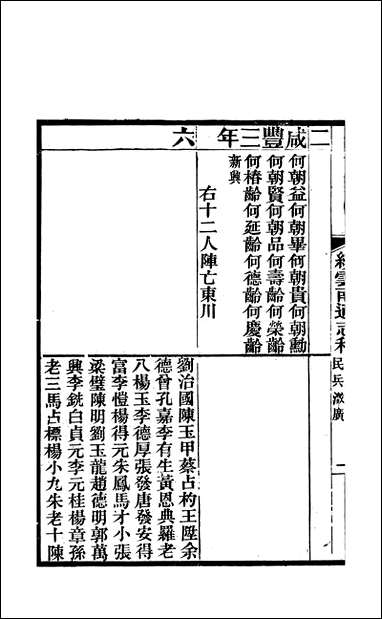 續雲南通志稿
民兵澂廣
一
二咸豐三年 六
何朝益何朝畢何朝貴何朝勳
何朝賢何朝品何壽齡何榮齡
何椿齡何延齡何德齡何慶齡
新興
右十二人陣亡東川
劉治國陳玉甲蔡占杓王陞余
德曾孔嘉李有生黃恩典羅老
八楊玉李德厚張發唐發安得
富李愷楊得元朱鳳馬才小張
梁璧陳明劉玉龍趙德明郭萬
興李銑白貞元李元桂楊章孫
老三馬占標楊小九朱老十陳